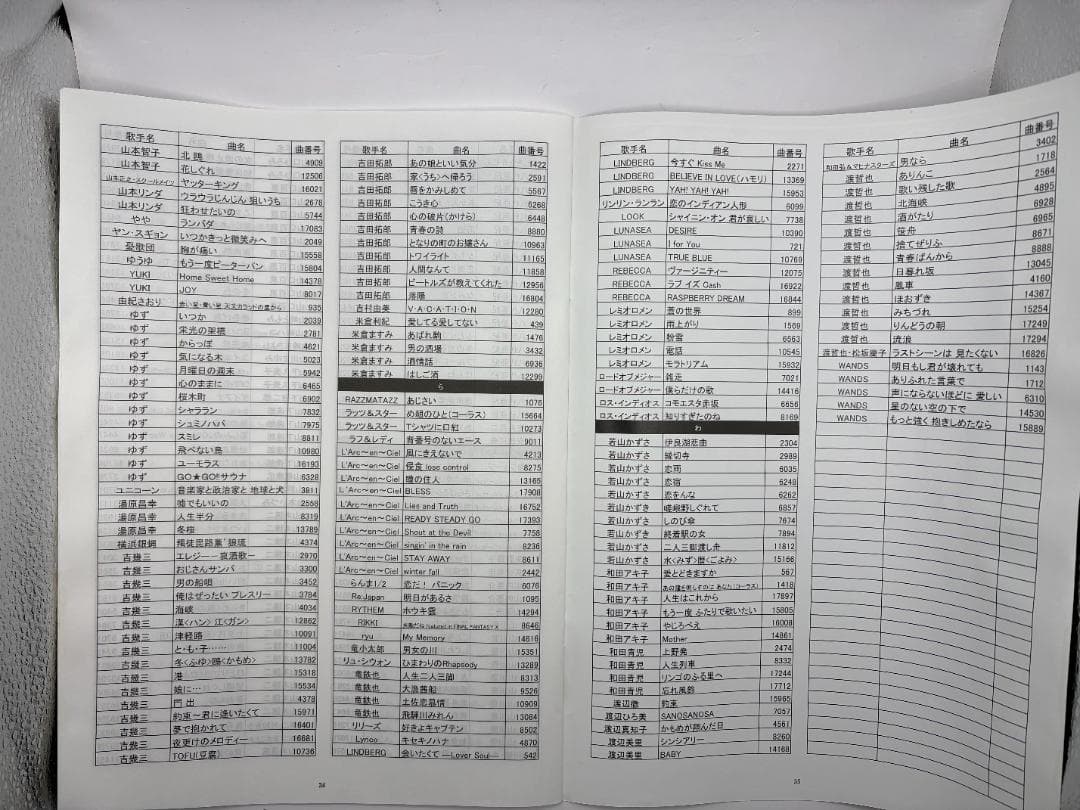 歌手名 曲名 曲番号
山本智子 北鴎 4909
山本智子 花しぐれ 12506
山本正之・スクールメイツ ヤッターキング 16021
山本リンダ ウララうらじんじん 狙いうち 2678
山本リンダ 狂わせたいの 5744
やや ランバダ 17083
ヤン・スギョン いつかきっと微笑みへ 2049
憂歌団 胸が痛い 15558
ゆうゆ もう一度ピーターパン 15804
YUKI Home Sweet Home 14378
YUKI JOY 8017
由紀さおり 935
ゆず いつか 2039
ゆず 栄光の架橋 2781
ゆず からっぽ 4621
ゆず 気になる木 5023
ゆず 月曜日の週末 5942
ゆず 心のままに 6465
ゆず 桜木町 6902
ゆず シャララン 7832
ゆず シュミノハバ 7975
ゆず スミレ 8811
ゆず 飛べない鳥 10980
ゆず ユーモラス 16193
ゆず GO★GO!!サウナ 6328
ユニコーン 音楽家と政治家と 地球と犬 3811
湯原昌幸 嘘でもいいの 2558
湯原昌幸 人生半分 8319
湯原昌幸 冬桜 13789
横浜銀蝿 4374
吉幾三 エレジー－哀酒歌－ 2970
吉幾三 おじさんサンバ 3300
吉幾三 男の船唄 3452
吉幾三 俺はぜったい プレスリー 3784
吉幾三 海峡 4034
吉幾三 漢<ハン> 江<ガン> 12862
吉幾三 津軽路 10091
吉幾三 と・も・子…… 11004
吉幾三 冬<ふゆ>鴎<かもめ> 13782
吉幾三 港 15318
吉幾三 娘に… 15534
吉幾三 門出 4378
吉幾三 約束～君に逢いたくて 15971
吉幾三 夢で抱かれて 16401
吉幾三 夜更けのメロディー 16681
吉幾三 TOFU(豆腐) 10736
34
歌手名 曲名 曲番号
吉田拓郎 あの娘といい気分 1422
吉田拓郎 家<うち>へ帰ろう 2591
吉田拓郎 唇をかみしめて 5567
吉田拓郎 こうき心 6268
吉田拓郎 心の破片(かけら) 6448
吉田拓郎 青春の詩 8880
吉田拓郎 となりの町のお嬢さん 10963
吉田拓郎 トワイライト 11165
吉田拓郎 人間なんて 11858
吉田拓郎 ビートルズが教えてくれた 12956
吉田拓郎 落陽 16804
吉村由美 V・A・C・A・T・I・O・N 12280
米倉利紀 愛してる愛してない 439
米倉ますみ あばれ駒 1476
米倉ますみ 男の酒場 3432
米倉ますみ 酒情話 6936
米倉ますみ はしご酒 12299
ら
RAZZMATAZZ あじさい 1076
ラッツ＆スター め組のひと(コーラス) 15664
ラッツ＆スター Tシャツに口紅 10273
ラフ＆レディ 背番号のないエース 9011
L'Arc～en～Ciel 風にきえないで 4213
L'Arc～en～Ciel 侵食 lose control 8275
L'Arc～en～Ciel 瞳の住人 13165
L'Arc～en～Ciel BLESS 17908
L'Arc～en～Ciel Lies and Truth 16752
L'Arc～en～Ciel READY STEADY GO 17393
L'Arc～en～Ciel Shout at the Devil 7756
L'Arc～en～Ciel singin' in the rain 8236
L'Arc～en～Ciel STAY AWAY 8611
L'Arc～en～Ciel winter fall 2442
らんま1/2 恋だ！ パニック 6076
Re:Japan 明日があるさ 1095
RYTHEM ホウキ雲 14294
RIKKI 8646
ryu My Memory 14616
竜小太郎 男女の川 15351
リュ・シウォン ひまわりのRhapsody 13289
竜鉄也 人生二人三脚 8313
竜鉄也 大浪茜船 9526
竜鉄也 土佐恋慕情 10909
竜鉄也 飛騨川みれん 13084
リリーズ 好きよキャプテン 8502
Lyrico キセキノハナ 4870
LINDBERG 会いたくて ―Lover Soul― 542
歌手名 曲名 曲番号
LINDBERG 今すぐ Kiss Me 2271
LINDBERG BELIEVE IN LOVE(ハモリ) 13369
LINDBERG YAH! YAH! YAH! 15953
リンリン・ランラン 恋のインディアン人形 6099
LOOK シャイニン・オン 君が哀しい 7738
LUNASEA DESIRE 10390
LUNASEA I for You 721
LUNASEA TRUE BLUE 10769
REBECCA ヴァージニティー 12075
REBECCA ラブ イズ Cash 16922
REBECCA RASPBERRY DREAM 16844
レミオロメン 蒼の世界 899
レミオロメン 雨上がり 1569
レミオロメン 粉雪 6563
レミオロメン 電話 10545
レミオロメン モラトリアム 15932
ロードオブメジャー 雑走 7021
ロードオブメジャー 僕らだけの歌 14416
ロス・インディオス コモエスタ赤坂 6656
ロス・インディオス 知りすぎたのね 8169
わ
若山かずさ 伊良湖悲曲 2304
若山かずさ 縁切寺 2989
若山かずさ 恋雨 6035
若山かずさ 恋宿 6248
若山かずさ 恋をんな 6262
若山かずさ 嵯峨野しぐれて 6857
若山かずさ しのび傘 7674
若山かずさ 終着駅の女 7894
若山かずさ 二人三脚渡し舟 11812
若山かずさ 水<みず>暦<ごよみ> 15166
和田アキ子 愛とどきますか 567
和田アキ子 1418
和田アキ子 人生はこれから 17897
和田アキ子 もう一度 ふたりで歌いたい 15805
和田アキ子 やじろべえ 16008
和田アキ子 Mother 14861
和田青児 上野発 2474
和田青児 人生列車 8332
和田青児 リンゴのふる里へ 17244
和田青児 忘れ風鈴 17712
渡辺徹 約束 15965
渡辺ひろ美 SANOSANOSA 7057
渡辺真知子 かもめが翔んだ日 4561
渡辺美里 シンシアリー 8260
渡辺美里 BABY 14168
35
歌手名 曲名 曲番号
和田弘＆マヒナスターズ 男なら 3402
渡哲也 ありんこ 1718
渡哲也 歌い残した歌 2564
渡哲也 北海峡 4895
渡哲也 酒がたり 6928
渡哲也 笹舟 6965
渡哲也 捨てぜりふ 8671
渡哲也 青春ばんから 8888
渡哲也 日暮れ坂 13045
渡哲也 風車 4160
渡哲也 ほおずき 14367
渡哲也 みちづれ 15254
渡哲也 りんどうの朝 17249
渡哲也 流浪 17294
渡哲也・松坂慶子 ラストシーンは 見たくない 16826
WANDS 明日もし君が壊れても 1143
WANDS ありふれた言葉で 1712
WANDS 声にならないほどに 愛しい 6310
WANDS 星のない空の下で 14530
WANDS もっと強く 抱きしめたなら 15889